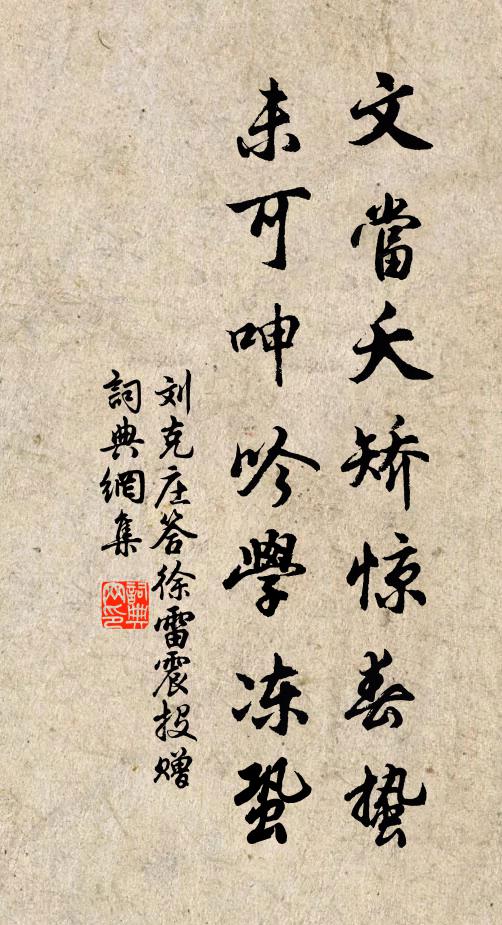 文當夭矫惊春蟄
未可呻吟學冻蛩
刘克庄答徐雷震投赠
詞典網集
詞典网印